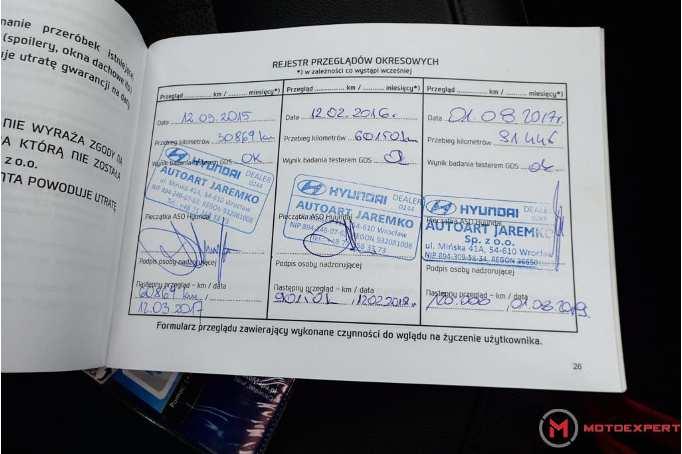 nanie przeróbek istniejącej
(spoilery, okna dachowe itp.)
uje utratę gwarancji na cały
NIE WYRAŻA ZGODY NA
A KTÓRĄ NIE ZOSTAŁA
z o.o.
NTA POWODUJE UTRATĘ
REJESTR PRZEGLĄDÓW OKRESOWYCH
*) w zależności co wystąpi wcześniej
Przegląd ............ km / ......... miesięcy*)
Data 12.03.2015
Przebieg kilometrów 30869 km
Wynik badania testerem GDS OK
HYUNDAI DEALER 0244
AUTOART JAREMKO
ul. Mińska 41A, 54-610 Wrocław
Pieczątka ASO Hyundai
Podpis osoby nadzorującej
Następny przegląd – km / data
60869 km
12.03.2017
Przegląd ............ km / ......... miesięcy*)
Data 12.02.2016r
Przebieg kilometrów 60150 km
Wynik badania testerem GDS
HYUNDAI DEALER 0244
AUTOART JAREMKO
ul. Mińska 41A, 54-610 Wrocław
Pieczątka ASO Hyundai
Podpis osoby nadzorującej
Następny przegląd – km / data
12.02.2018
Przegląd ............ km / ......... miesięcy*)
Data 01.08.2017r
Przebieg kilometrów 81446
Wynik badania testerem GDS ok
HYUNDAI DEALER
Pieczątka ASO Hyundai
AUTOART JAREMKO
Sp. z o.o.
ul. Mińska 41A, 54-610 Wrocław
Podpis osoby nadzorującej
Następny przegląd – km / data
01.08.2019
Formularz przeglądu zawierający wykonane czynności do wglądu na życzenie użytkownika.
26
MOTOEXPERT